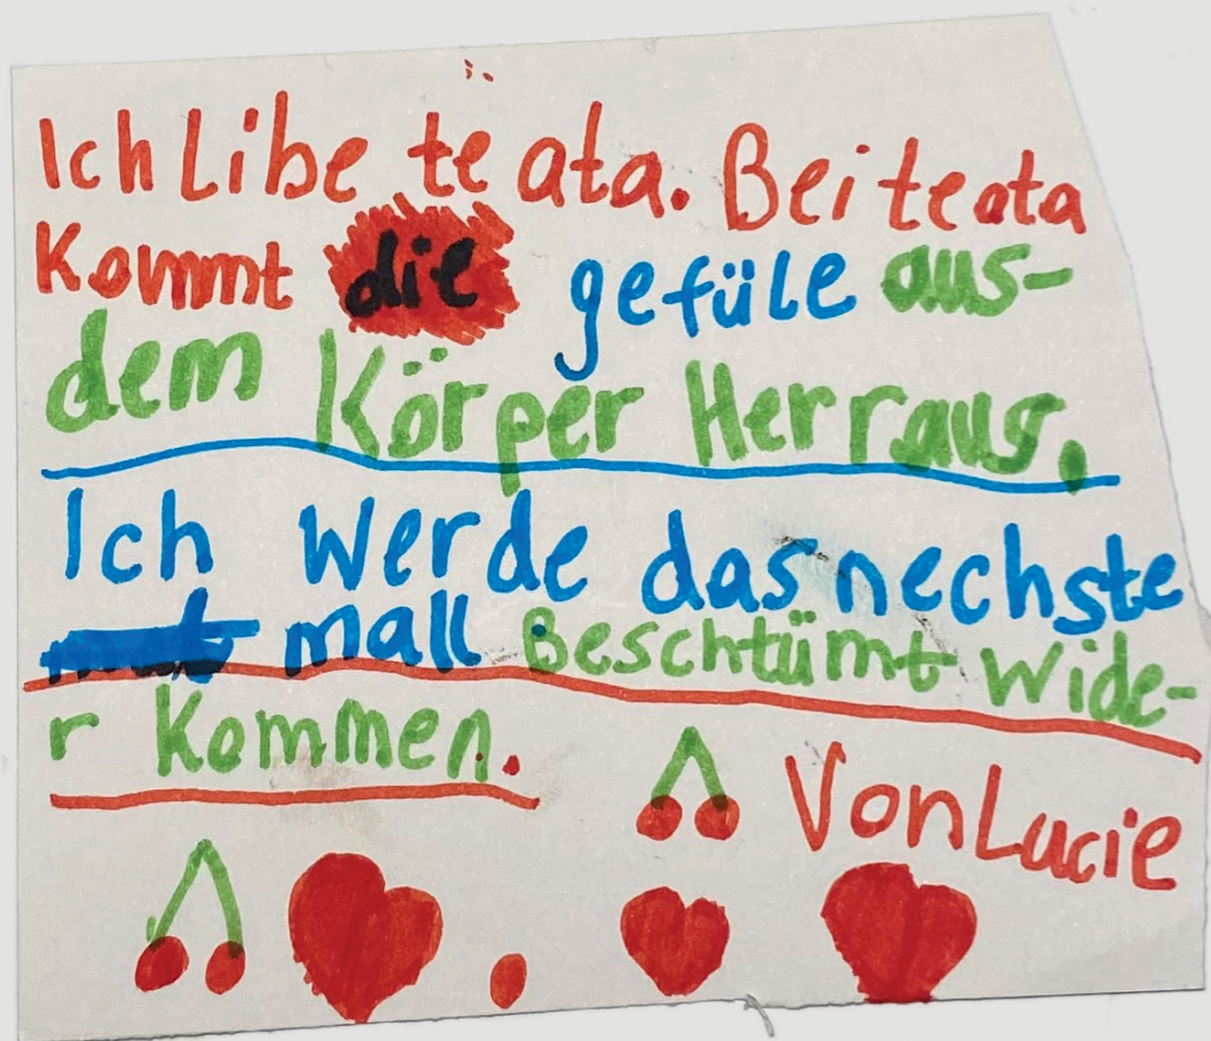 Ich Libe te ata. Bei teata
Kommt die gefüle aus-
dem Körper Herraus.
Ich werde das nechste
mall Beschtümt wide-
r kommen.
Von Lucie